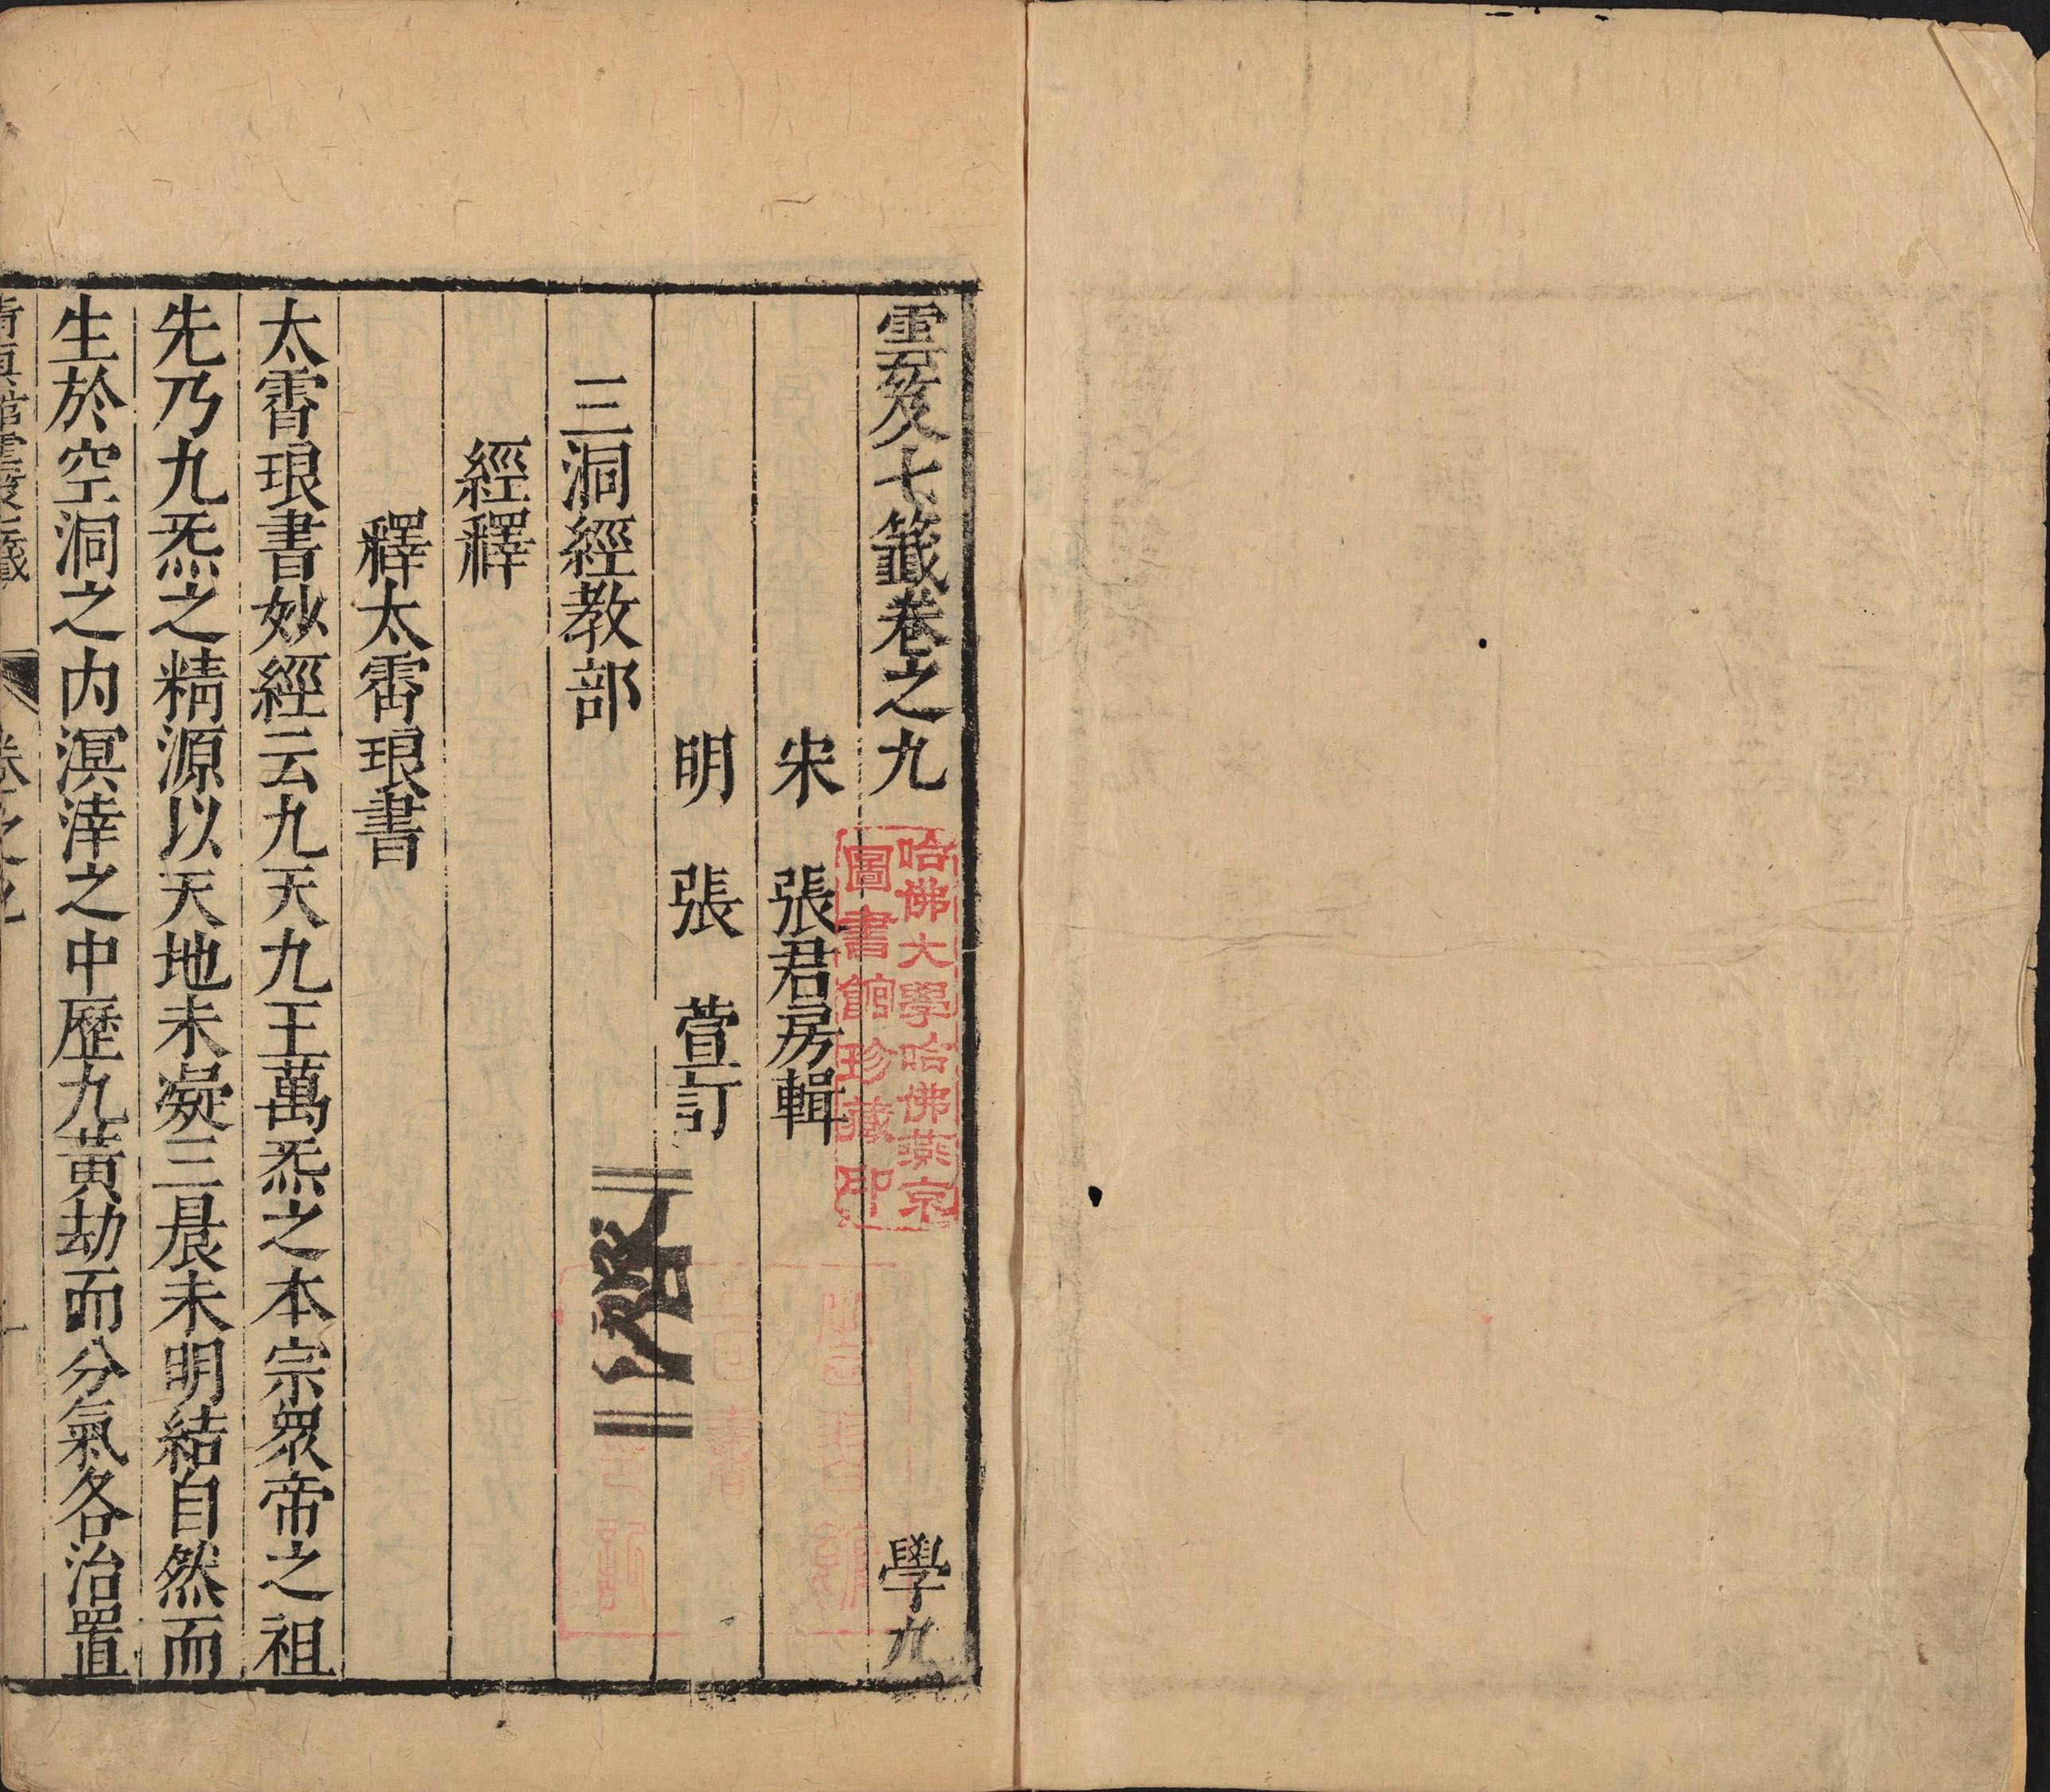 雲笈七籤卷之九 學九
宋 張君房輯
明 張 萱訂
三洞經教部
經釋
釋太霄琅書
太霄琅書妙經云九天九王萬炁之本宗眾帝之祖
先乃九炁之精源以天地未凝三晨未明結自然而
生於空洞之內溟涬之中歷九黃劫而分氣各治置
清真館雲笈七籤 卷之九 一
哈佛大學哈佛燕京
圖書館珍藏印